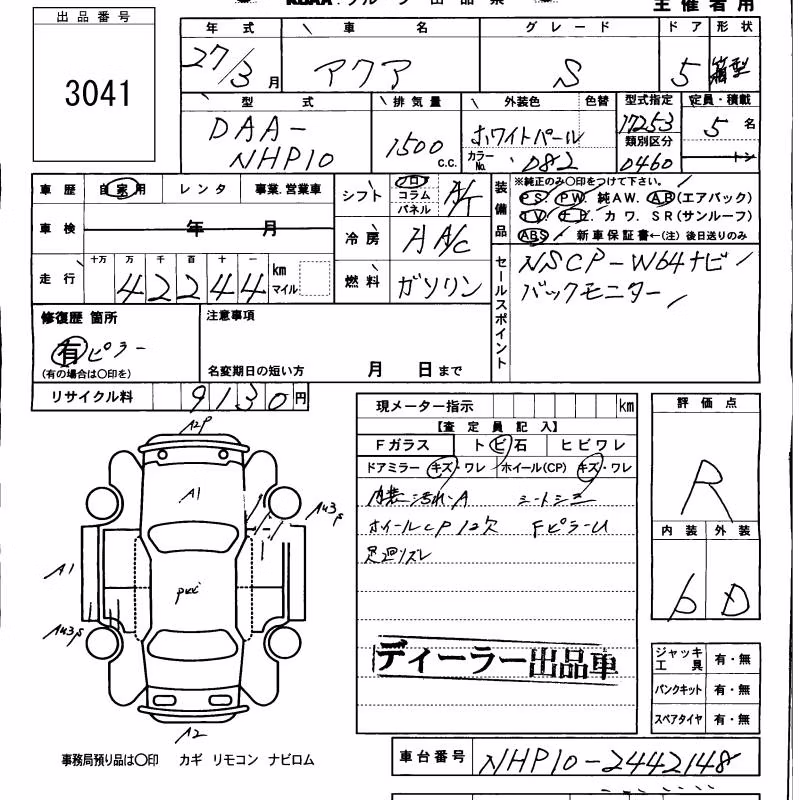 主催者用
出品番号
3041
年式 車名 グレード ドア 形状
27/3月 アクア S 5 箱型
型式 排気量 外装色 色替 型式指定 定員・積載
DAA-NHP10 1500 c.c. ホワイトパール 17253 5名
カラーNo. 082 類別区分 0460 トン
車歴 自家用 レンタ 事業.営業車
車検 年 月
走行 十万 万 千 百 十 一 42244 km マイル
シフト フロア コラム パネル A/T
冷房 A/C
燃料 ガソリン
装備品 ※純正のみ〇印をつけて下さい。
PS. PW. 純AW. AB(エアバック)
TV. ナビ. カワ. SR(サンルーフ)
ABS 新車保証書←(注) 後日送りのみ
セールスポイント NSCP-W64ナビ
バックモニター
修復歴 箇所
有 ピラー
(有の場合は〇印を)
注意事項
名変期日の短い方 月 日まで
リサイクル料 9130円
現メーター指示 km
【査定員記入】
Fガラス トビ石 ヒビワレ
ドアミラー キズ・ワレ ホイール(CP) キズ・ワレ
内装汚れ・A シートシミ
ホイールCP 12欠 FピラーU
足廻りズレ
ディーラー出品車
評価点
R
内装 外装
b D
ジャッキ工具 有・無
パンクキット 有・無
スペアタイヤ 有・無
A1
A1
A2
事務局預り品は〇印 カギ リモコン ナビロム
車台番号 NHP10-2442148